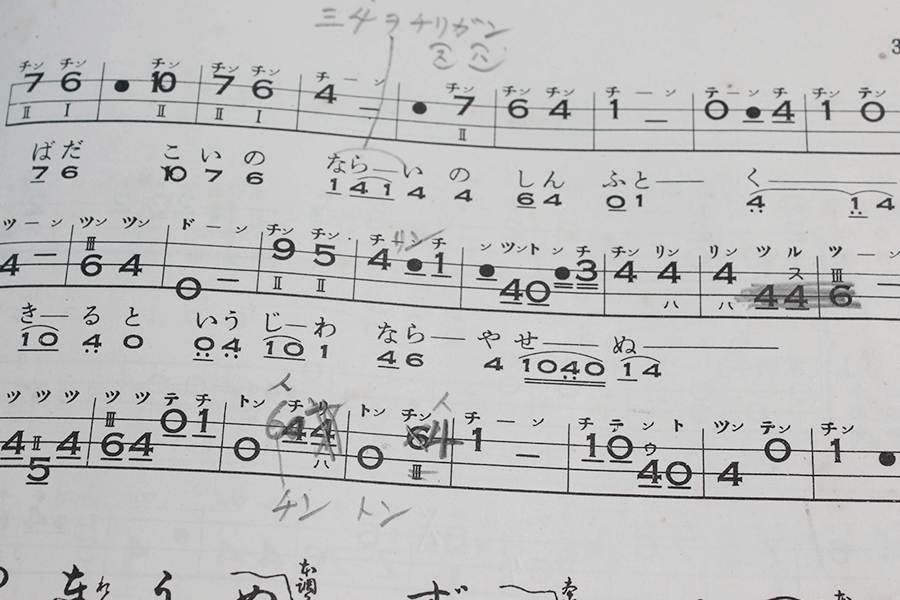 三4ヲチリガン
3
チン チン チン チン チン チ ー ン チン チン チン チ ー ン テ ー ン チ チン テン
7 6 ● 10 7 6 4 − ● 7 6 4 1 − 0 ● 4 1 0
Ⅱ Ⅰ Ⅱ Ⅱ Ⅰ Ⅱ
ばだ こいの なら—いの しん ふと— く—
7 6 10 7 6 1 4 1 4 4 6 4 0 1 4 1 4
ツ ー ン ツン ツン ド ー ン チン チン チ サン チ ン ツント ン チ チン リン リン ツ ル ツ ー ン
Ⅲ ス Ⅲ
4 − 6 4 0 − 9 5 4 ● 1 ● 4 0 ● 3 4 4 4 4 4 6 −
Ⅱ Ⅱ ハ ハ
き—ると いう じ—わ なら—やせ—ぬ—
1 0 4 0 0 4 1 0 1 4 6 4 1 0 4 0 1 4
イ イ
ツ ツ ツ ツ ツ テ チ トン チ リ トン チン チ ー ン チ テ ン ト ツン テン チン
Ⅲ ウ
4 Ⅱ 4 6 4 0 1 0 6 4 4 0 6 4 1 − 1 0 4 0 4 0 1 ●
5 ハ Ⅲ
チン トン
本調